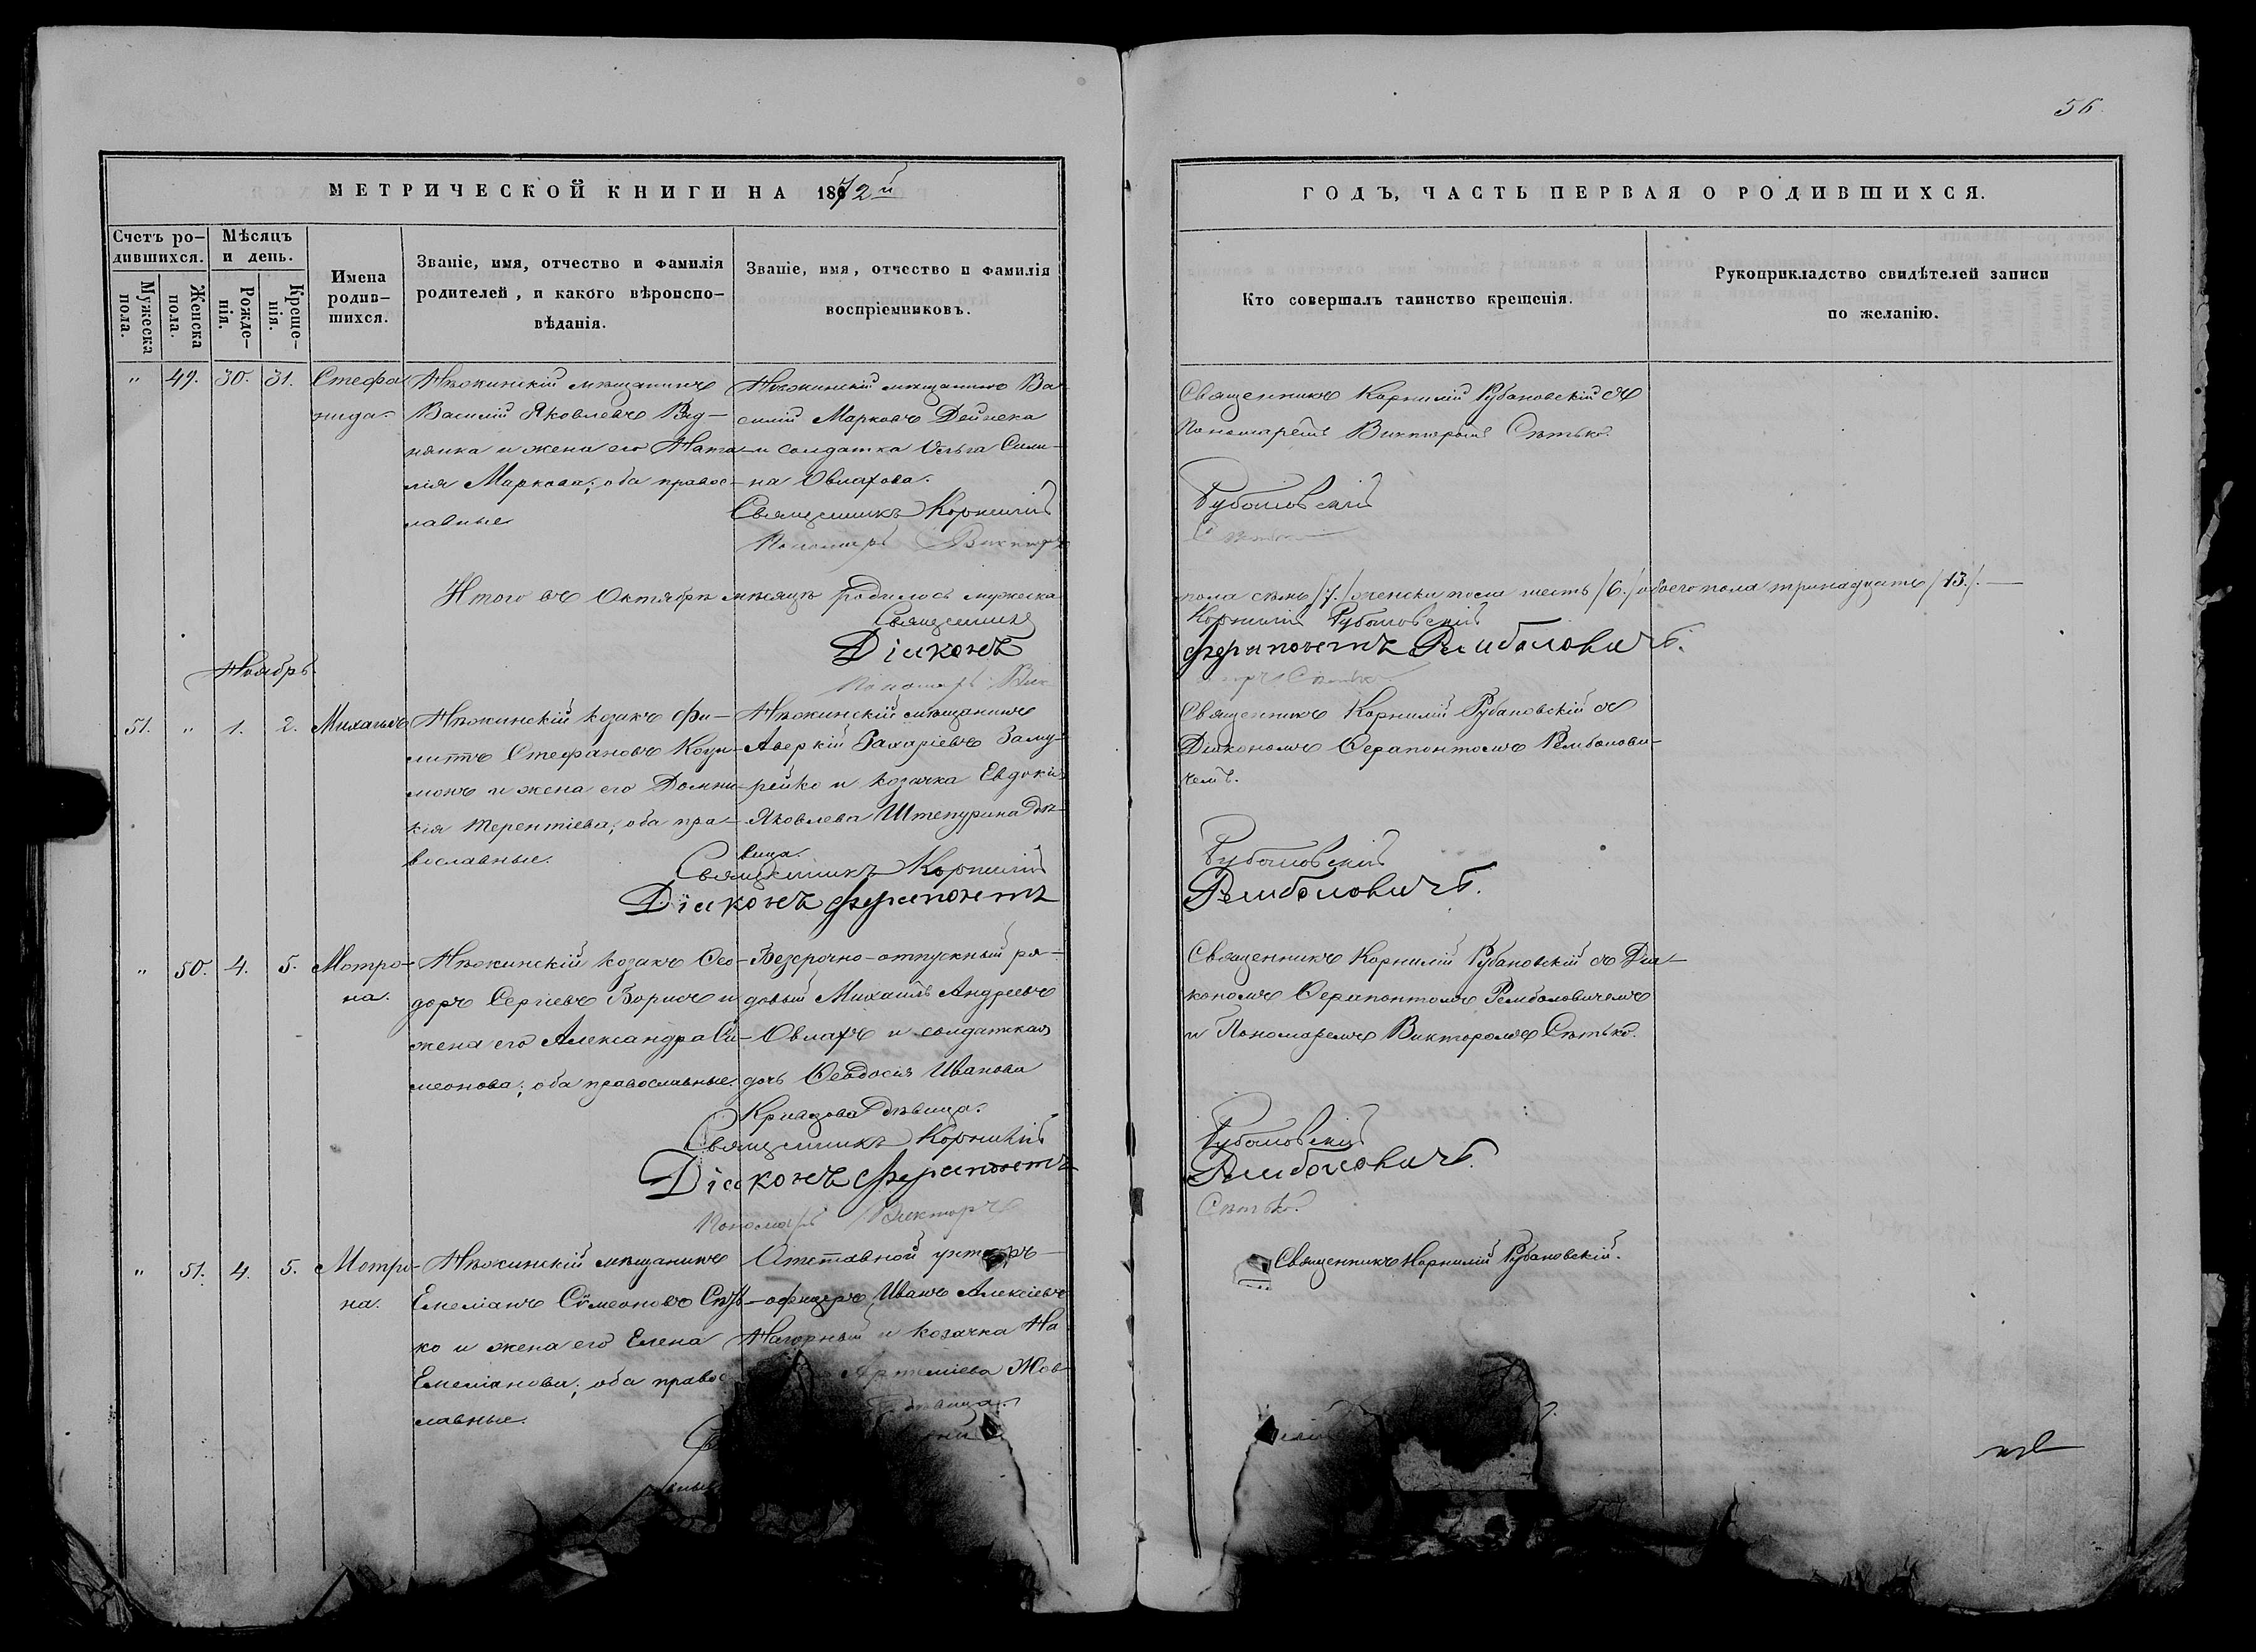 56.
МЕТРИЧЕСКОЙ КНИГИ НА 1872й
ГОДЪ, ЧАСТЬ ПЕРВАЯ О РОДИВШИХСЯ.
Счетъ ро-
дившихся.
Мужеска
пола.
Женска
пола.
Мѣсяцъ
и день.
Рожде-
нія.
Креще-
нія.
Имена
родив-
шихся.
Званіе, имя, отчество и фамилія
родителей, и какого вѣроиспо-
вѣданія.
Званіе, имя, отчество и фамилія
воспріемниковъ.
Кто совершалъ таинство крещенія.
Рукоприкладство свидѣтелей записи
по желанію.
" 49. 30. 31.
Стефа
нида.
Нѣжинскій мѣщанинъ
Василій Яковлевъ
и жена его Ната-
лія Маркова; оба правос-
лавные
Нѣжинскій мѣщанинъ Ва-
силій Марковъ Дейнека
и солдатка Ольга Сили-
на Овлахова.
Священникъ Корнилій
Пономарь Викторъ
Священникъ Корнилій Рубановскій съ
Пономаремъ Викторомъ Сѣтько.
Рубановскій
Сѣтько
Итого въ Октябрѣ мѣсяцѣ родилось мужеска
пола семь /7./ женска пола шесть /6./ обоего пола тринадцать /13./.—
Священникъ
Корнилій Рубановскій
Діаконъ
Ферапонтъ Рембаловичъ.
Пономарь Вик
торъ Сѣтько
Ноябрь.
51. " 1. 2. Михаилъ
Нѣжинскій козакъ Фи-
липпъ Стефановъ
и жена его Домни-
кія Терентіева; оба пра-
вославные.
Нѣжинскій мѣщанинъ
Аверкій Захаріевъ Заму-
рейко и козачка Евдокія
Яковлева Штепурина дѣ-
вица.
Священникъ Корнилій
Діаконъ Ферапонтъ
Священникъ Корнилій Рубановскій съ
Діакономъ Ферапонтомъ Рембалови-
чемъ.
Рубановскій
Рембаловичъ.
" 50. 4. 5. Мотро-
на.
Нѣжинскій козакъ Ѳео-
доръ Сергіевъ Борисъ и
жена его Александра Си-
меонова; оба православные.
Безсрочно-отпускный ря-
довый Михаилъ Андреевъ
Овлахъ и солдатская
дочь Ѳеодосія Иванова
Кривцова дѣвица.
Священникъ Корнилій
Діаконъ Ферапонтъ
Пономарь Викторъ
Священникъ Корнилій Рубановскій съ Діа-
кономъ Ферапонтомъ Рембаловичемъ
и Пономаремъ Викторомъ Сѣтько.
Рубановскій
Рембаловичъ.
Сѣтько.
" 51. 4. 5. Мотро-
на.
Нѣжинскій мѣщанинъ
Емеліанъ Симеоновъ Сѣть-
ко и жена его Елена
Емеліанова; оба правос
лавные.
Отставной унтеръ-
офицеръ Иванъ Алексіевъ
Нагорный и козачка На
Артеміева Жов
дѣвица.
Священникъ Корнилій Рубановскій.